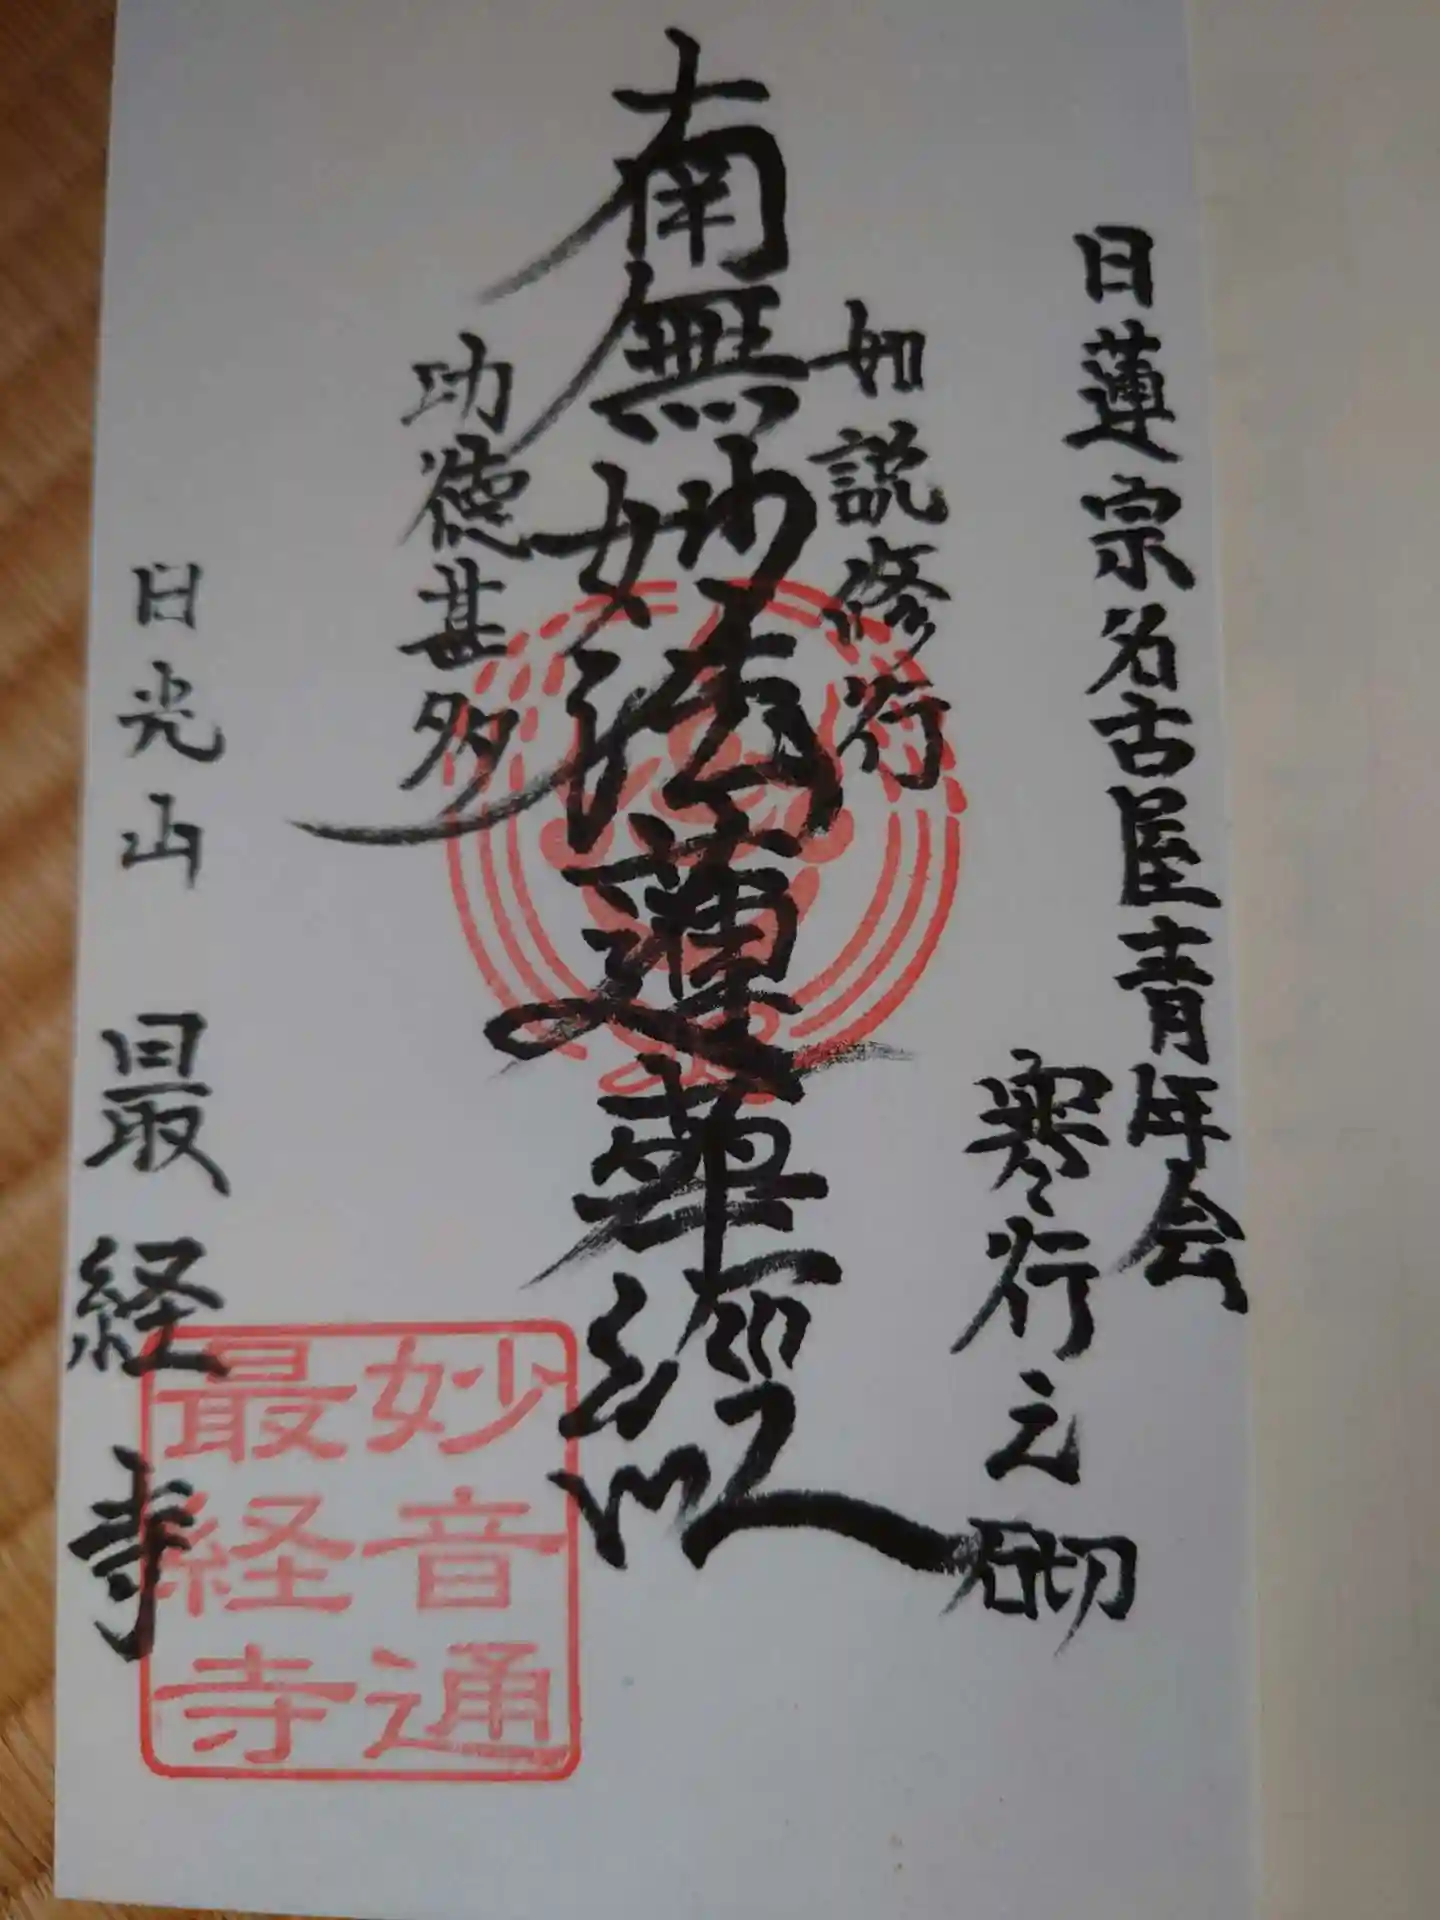 日蓮宗名古屋青年会
寒行之砌
如説修行
南無妙法蓮華経
功徳甚多
日光山 最経寺
妙音通
最経寺